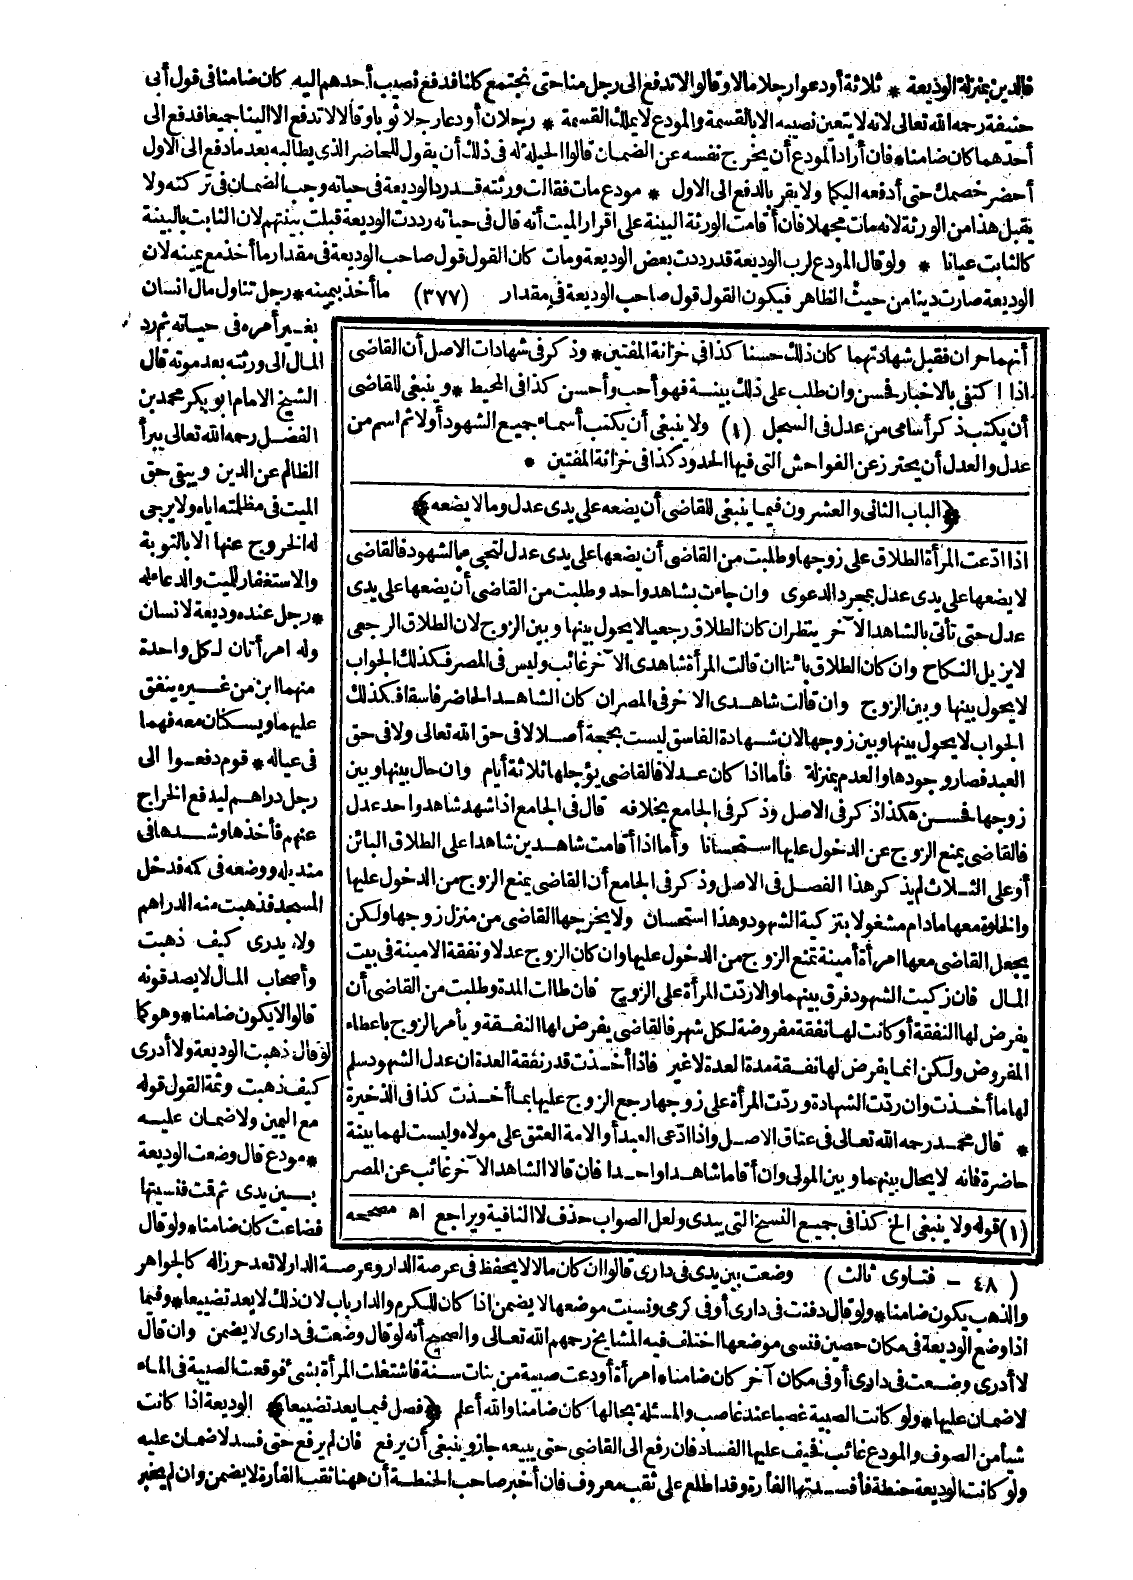 فالدين بمنزلة الوديعة * ثلاثة أودعوا رجلا مالا وقالوا لا تدفع الى رجل منا حتى نجتمع كلنا فدفع نصيب أحدهم اليه كان ضامنا فى قول أبى
حنيفة رحمه الله تعالى لانه لا يتعين نصيبه الا بالقسمة والمودع لا يملك القسمة * رجلان أودعا رجلا ثوبا وقالا لا تدفع الا الينا جميعا فدفع الى
أحدهما كان ضامنا * فان أراد المودع أن يخرج نفسه عن الضمان قالوا الحيلة له فى ذلك أن يقول للحاضر الذى يطالبه بعد ما دفع الى الاول
أحضر خصمك حتى أدفعه اليكما ولا يقر بالدفع الى الاول * مودع مات فقالت ورثته قد رد الوديعة فى حياته وجب الضمان فى تركته ولا
يقبل هذا من الورثة لانه مات مجهلا فان أقامت الورثة البينة على اقرار الميت أنه قال فى حياته رددت الوديعة قبلت بينتهم لان الثابت بالبينة
كالثابت عيانا * ولو قال المودع لرب الوديعة قد رددت بعض الوديعة ومات كان القول قول صاحب الوديعة فى مقدار ما أخذ مع يمينه لان
الوديعة صارت دينا من حيث الظاهر فيكون القول قول صاحب الوديعة فى مقدار (٣٧٧) ما أخذ بيمينه * رجل تناول مال انسان
بغير أمره فى حياته ثم رد
المال الى ورثته بعد موته قال
الشيخ الامام ابو بكر محمد بن
الفضل رحمه الله تعالى يبرأ
الظالم عن الدين ويبقى حق
الميت فى مظلمته اياه ولا يرجى
له الخروج عنها الا بالتوبة
والاستغفار للميت والدعاء له
* رجل عنده وديعة لانسان
وله امرأتان لكل واحدة
منهما ابن من غيره ينفق
عليهما ويسكنان معه فهما
فى عياله * قوم دفعوا الى
رجل دراهم ليدفع الخراج
عنهم فأخذها وشدها فى
منديله ووضعه فى كمه فدخل
المسجد فذهبت منه الدراهم
ولا يدرى كيف ذهبت
وأصحاب المال لا يصدقونه
قالوا لا يكون ضامنا * وهو كما
لو قال ذهبت الوديعة ولا أدرى
كيف ذهبت وثمة القول قوله
مع اليمين ولا ضمان عليه
* مودع قال وضعت الوديعة
بين يدى ثم قمت فنسيتها
فضاعت كان ضامنا * ولو قال
أنهما حران فقبل شهادتهما كان ذلك حسنا كذا فى خزانة المفتين * وذكر فى شهادات الاصل أن القاضى
اذا اكتفى بالاخبار فحسن وان طلب على ذلك بينة فهو أحب وأحسن كذا فى المحيط * وينبغى للقاضى
أن يكتب ذكر أسامى من عدل فى السجل (١) ولا ينبغى أن يكتب أسماء جميع الشهود أولا ثم اسم من
عدل والعدل أن يحترز عن الفواحش التى فيها الحدود كذا فى خزانة المفتين *
﴿الباب الثانى والعشرون فيما ينبغى للقاضى أن يضعه على يدى عدل وما لا يضعه﴾
اذا ادعت المرأة الطلاق على زوجها وطلبت من القاضى أن يضعها على يدى عدل لتجىء بالشهود فالقاضى
لا يضعها على يدى عدل بمجرد الدعوى وان جاءت بشاهد واحد وطلبت من القاضى أن يضعها على يدى
عدل حتى تأتى بالشاهد الآخر ينظر ان كان الطلاق رجعيا لا يحول بينها وبين الزوج لان الطلاق الرجعى
لا يزيل النكاح وان كان الطلاق بائنا ان قالت المرأة شاهدى الآخر غائب وليس فى المصر فكذلك الجواب
لا يحول بينها وبين الزوج وان قالت شاهدى الآخر فى المصر ان كان الشاهد الحاضر فاسقا فكذلك
الجواب لا يحول بينها وبين زوجها لان شهادة الفاسق ليست بحجة أصلا لا فى حق الله تعالى ولا فى حق
العبد فصار وجودها والعدم بمنزلة فأما اذا كان عدلا فالقاضى يؤجلها ثلاثة أيام وان حال بينها وبين
زوجها فحسن هكذا ذكر فى الاصل وذكر فى الجامع بخلافه قال فى الجامع اذا شهد شاهد واحد عدل
فالقاضى يمنع الزوج عن الدخول عليها استحسانا وأما اذا أقامت شاهدين شاهدا على الطلاق البائن
أو على الثلاث لم يذكر هذا الفصل فى الاصل وذكر فى الجامع أن القاضى يمنع الزوج من الدخول عليها
والخلوة معها ما دام مشغولا بتزكية الشهود وهذا استحسان ولا يخرجها القاضى من منزل زوجها ولكن
يجعل القاضى معها امرأة أمينة تمنع الزوج من الدخول عليها وان كان الزوج عدلا ونفقة الامينة فى بيت
المال فان زكيت الشهود فرق بينهما والا ردت المرأة على الزوج فان طالت المدة وطلبت من القاضى أن
يفرض لها النفقة أو كانت لها نفقة مفروضة لكل شهر فالقاضى يفرض لها النفقة ويأمر الزوج باعطاء
المفروض ولكن انما يفرض لها نفقة مدة العدة لا غير فاذا أخذت قدر نفقة العدة ان عدل الشهود سلم
لها ما أخذت وان ردت الشهادة وردت المرأة على زوجها رجع الزوج عليها بما أخذت كذا فى الذخيرة
* قال محمد رحمه الله تعالى فى عتاق الاصل واذا ادعى العبد أو الامة العتق على مولاه وليست لهما بينة
حاضرة فانه لا يحال بينهما وبين المولى وان أقاما شاهدا واحدا فان قالا الشاهد الآخر غائب عن المصر
(١) قوله ولا ينبغى الخ كذا فى جميع النسخ التى بيدى ولعل الصواب حذف لا النافية ويراجع اه مصححه
(٤٨ - فتاوى ثالث) وضعت بين يدى فى دارى قالوا ان كان مالا لا يحفظ فى عرصة الدار وعرصة الدار لا تعد حرزا له كالجواهر
والذهب يكون ضامنا * ولو قال دفنت فى دارى أو فى كرمى ونسيت موضعها لا يضمن اذا كان للكرم والدار باب لان ذلك لا يعد تضييعا * وفيما
اذا وضع الوديعة فى مكان حصين فنسى موضعها اختلف فيه المشايخ رحمهم الله تعالى والصحيح أنه لو قال وضعت فى دارى لا يضمن وان قال
لا أدرى وضعت فى دارى أو فى مكان آخر كان ضامنا * امرأة أودعت صبية من بنات سنة فاشتغلت المرأة بشىء فوقعت الصبية فى الماء
لا ضمان عليها * ولو كانت الصبية غصبا عند غاصب والمسئلة بحالها كان ضامنا والله أعلم ﴿فصل فيما يعد تضييعا﴾ الوديعة اذا كانت
شيأ من الصوف والمودع غائب فخيف عليها الفساد فان رفع الى القاضى حتى يبيعه جاز وينبغى أن يرفع فان لم يرفع حتى فسد لا ضمان عليه
ولو كانت الوديعة حنطة فأفسدتها الفأرة وقد اطلع على ثقب معروف فان أخبر صاحب الحنطة أن ههنا ثقب الفأرة لا يضمن وان لم يخبر